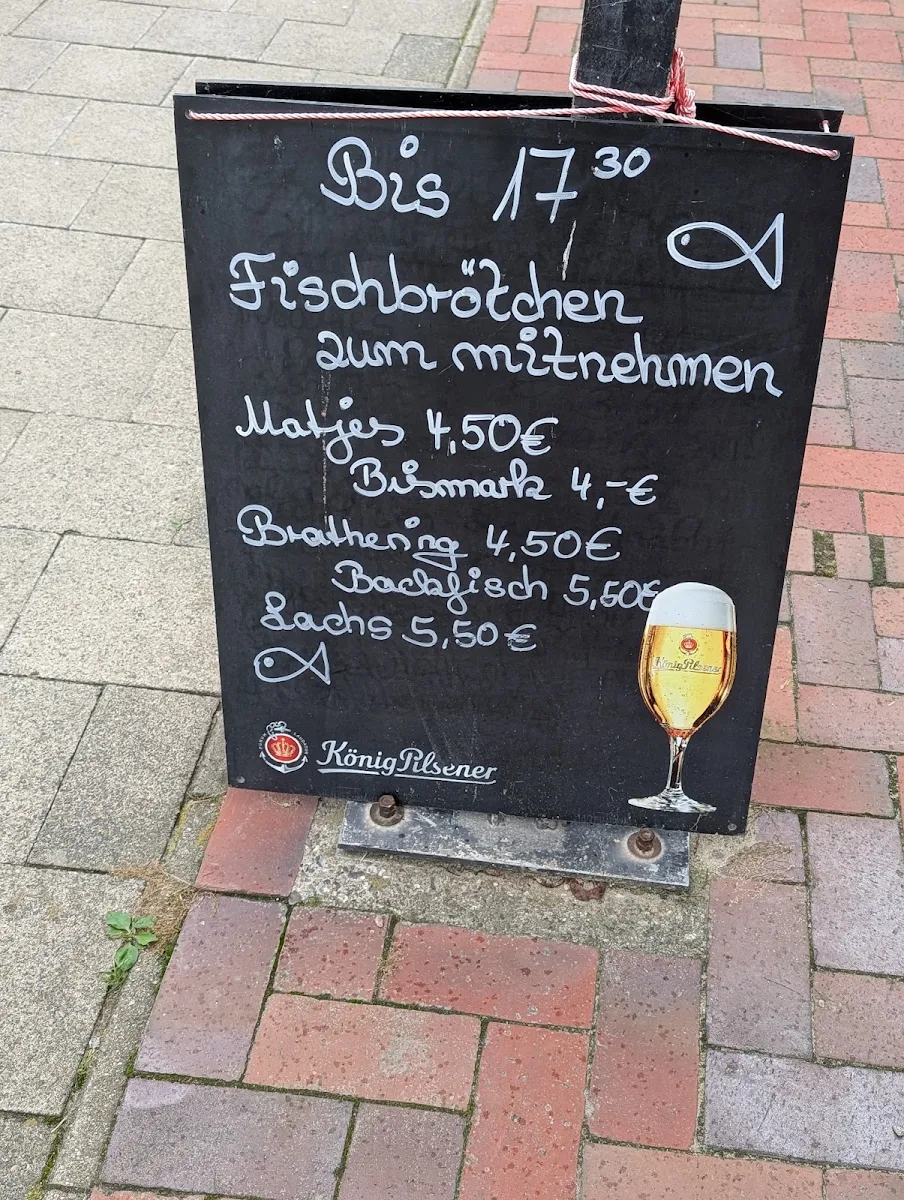 Bis 17³⁰
Fischbrötchen
zum mitnehmen
Matjes 4,50€
Bismark 4,-€
Brathering 4,50€
Backfisch 5,50€
Lachs 5,50€
König Pilsener
König Pilsener